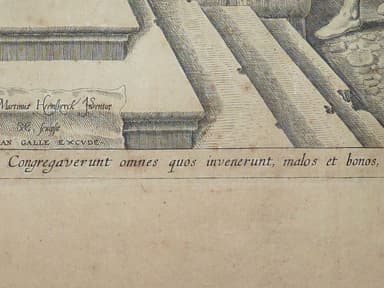 Martinus Hemskerck Inventor
sculpsit
AN GALLE EXCVDE.
Congregaverunt omnes quos invenerunt, malos et bonos,